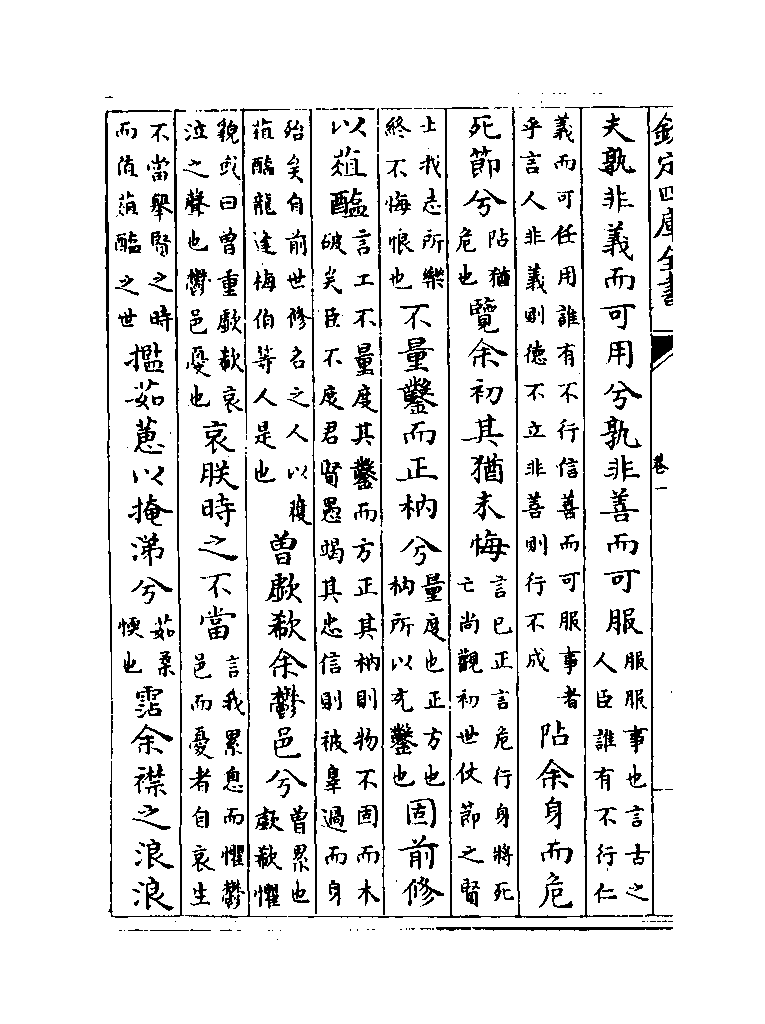 欽定四庫全書 卷一
夫孰非義而可用兮孰非善而可服服服事也言古之人臣誰有不行仁
義而可任用誰有不行信善而可服事者乎言人非義則德不立非善則行不成阽余身而危
死節兮阽猶危也覽余初其猶未悔言已正言危行身將死亡尚觀初世仗節之賢
士我志所樂終不悔恨也不量鑿而正枘兮量度也正方也枘所以充鑿也固前修
以菹醢言工不量度其鑿而方正其枘則物不固而木破矣臣不度君賢愚竭其忠信則被辠過而身
殆矣自前世修名之人以獲菹醢龍逢梅伯等人是也曽歔欷余鬱邑兮曽累也歔欷懼
貌或曰曽重歔欷哀泣之聲也鬱邑憂也哀朕時之不當言我累息而懼鬱邑而憂者自哀生
不當舉賢之時而值菹醢之世㩜茹蕙以掩涕兮茹柔愞也霑余襟之浪浪